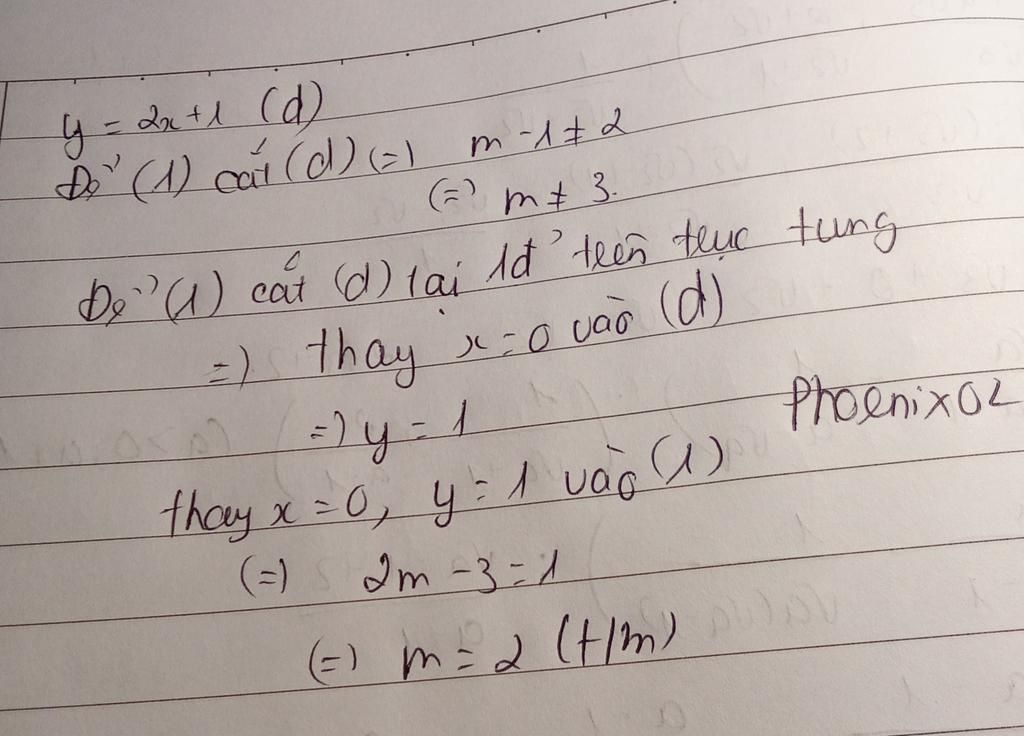 y = 2x+1 (d)
Để (1) cắt (d) (=) m -1 ≠ 2
(=) m ≠ 3.
Để (1) cắt (d) tại 1đ' trên trục tung
=) thay x=0 vào (d)
=) y = 1
Phoenix02
thay x = 0, y = 1 vào (1)
(=) 2m - 3 = 1
(=) m = 2 (t/m)